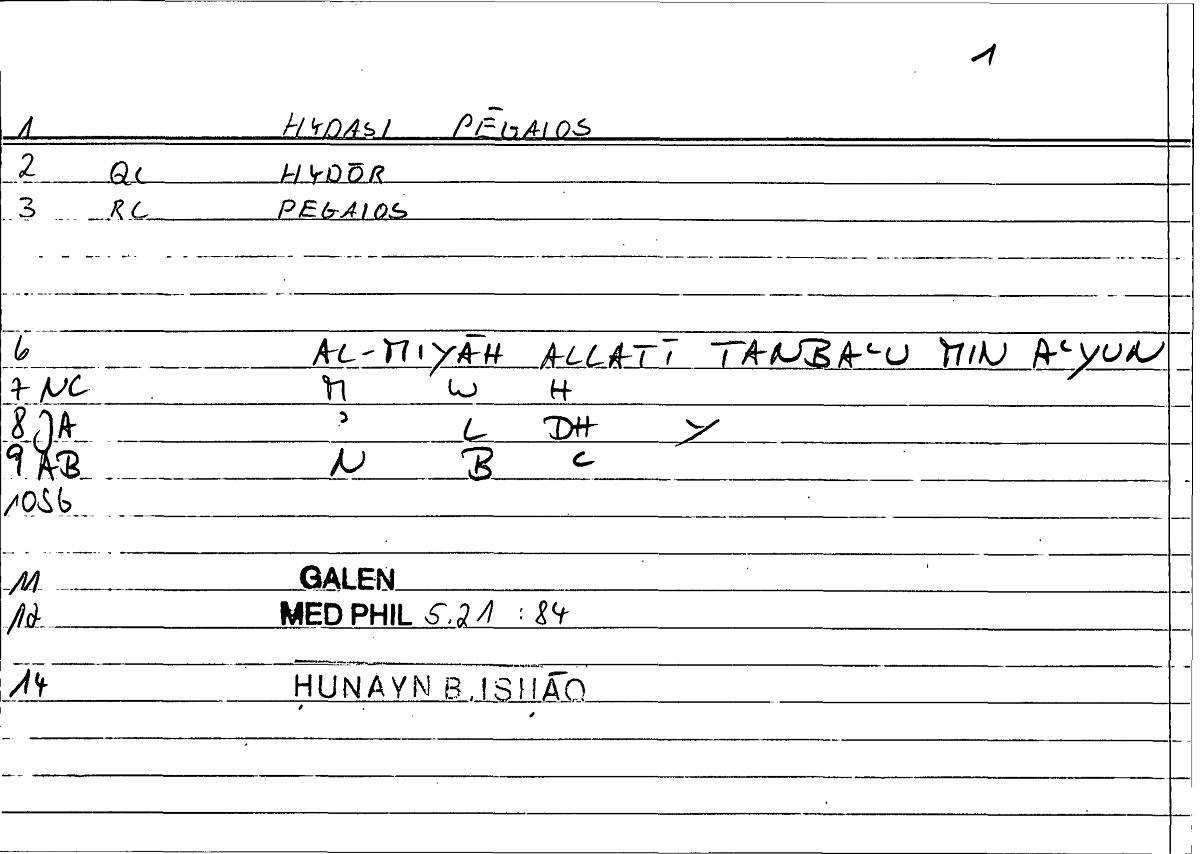 1
1 HYDASI PĒGAIOS
2 QC HYDŌR
3 RC PEGAIOS
6 AL-MIYĀH ALLATĪ TANBAʿU MIN AʿYUN
7 NC M W H
8 JA ʾ L DH Y
9 AB N B ʿ
10 SG
11 GALEN
12 MED PHIL 5.21 : 84
14 ḤUNAYN B. ISḤĀQ